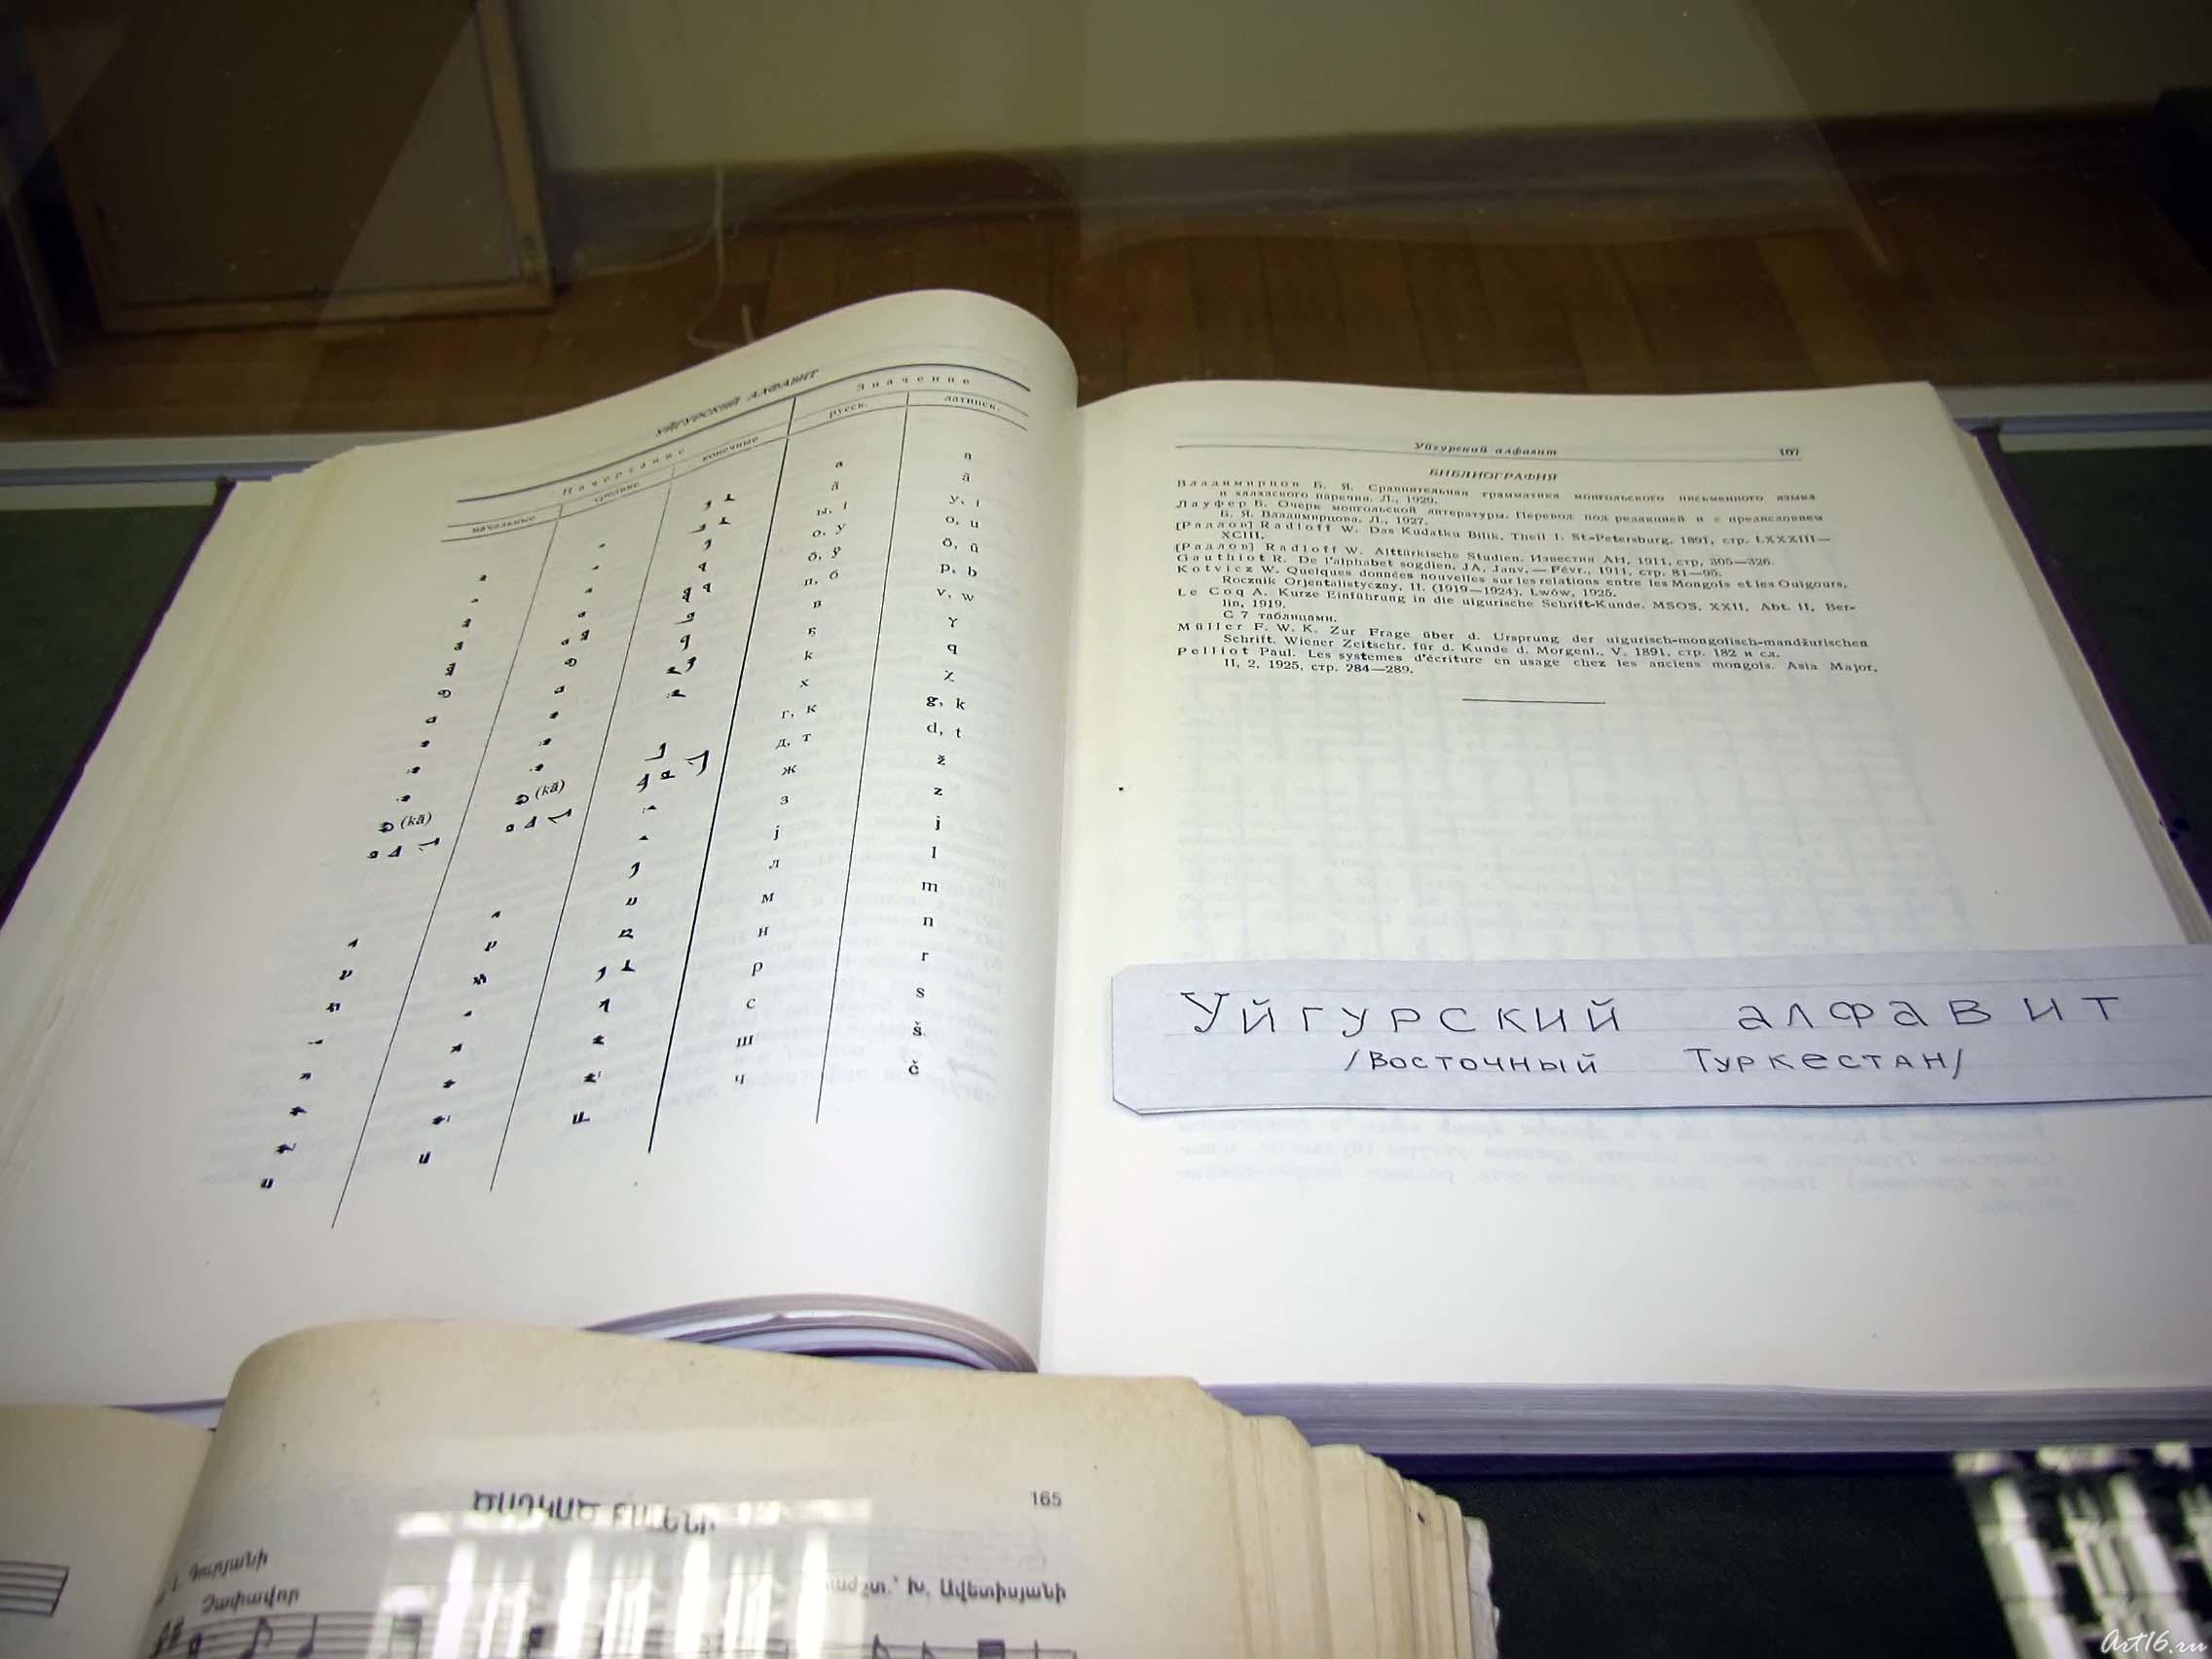 УЙГУРСКИЙ АЛФАВИТ
Начертание Значение
начальные средние конечные русск. латинск.
а a
ä ä
ы, i y, i
о, у o, u
ö, ÿ ö, ü
п, б p, b
в v, w
ҕ γ
k q
х χ
г, к g, k
д, т d, t
ж ž
з z
j j
л l
м m
н n
р r
с s
ш š
ч č
(kä) (kä)
Уйгурский алфавит 107
БИБЛИОГРАФИЯ
Владимирцов Б. Я. Сравнительная грамматика монгольского письменного языка
и халхаского наречия. Л., 1929.
Лауфер Б. Очерк монгольской литературы. Перевод под редакцией и с предисловием
Б. Я. Владимирцова. Л., 1927.
[Радлов] Radloff W. Das Kudatku Bilik. Theil I. St.-Petersburg, 1891, стр. LXXXIII—
XCIII.
[Радлов] Radloff W. Alttürkische Studien. Известия АН, 1911, стр. 305—326.
Gauthiot R. De l'alphabet sogdien. JA, Janv.—Févr., 1911, стр. 81—95.
Kotvicz W. Quelques données nouvelles sur les relations entre les Mongols et les Ouigours.
Rocznik Orjentalistyczny, II. (1919—1924). Lwów, 1925.
Le Coq A. Kurze Einführung in die uigurische Schrift-Kunde. MSOS, XXII, Abt. II, Ber-
lin, 1919.
С 7 таблицами.
Müller F. W. K. Zur Frage über d. Ursprung der uigurisch-mongolisch-mandžurischen
Schrift. Wiener Zeitschr. für d. Kunde d. Morgenl., V. 1891, стр. 182 и сл.
Pelliot Paul. Les systemes d'écriture en usage chez les anciens mongols. Asia Major,
II, 2, 1925, стр. 284—289.
Уйгурский алфавит
/Восточный Туркестан/
165
ԾԱՂԿԱԾ ԲԱԼԵՆԻ
Չափավոր
Խ. Ավետիսյանի
Art16.ru